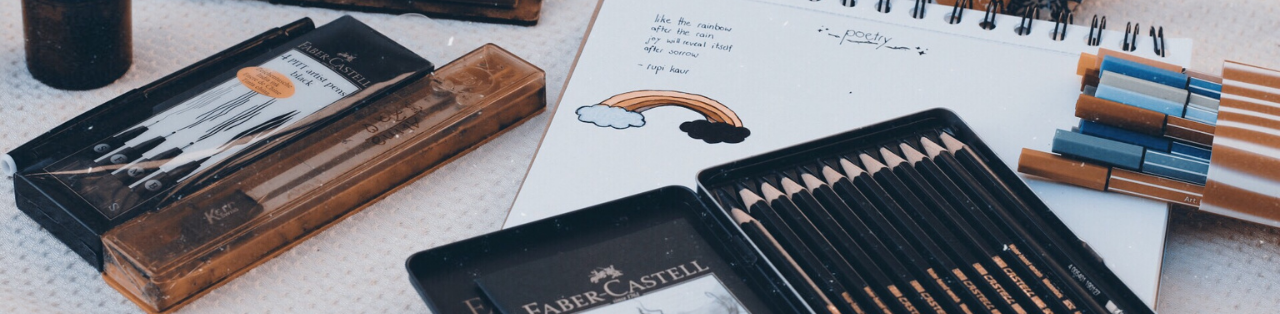 FABER-CASTELL
4 PITT artist pens
black
like the rainbow
after the rain
joy will reveal itself
after sorrow
- rupi kaur
poetry
FABER-CASTELL
CASTELL
CASTELL
CASTELL
Art